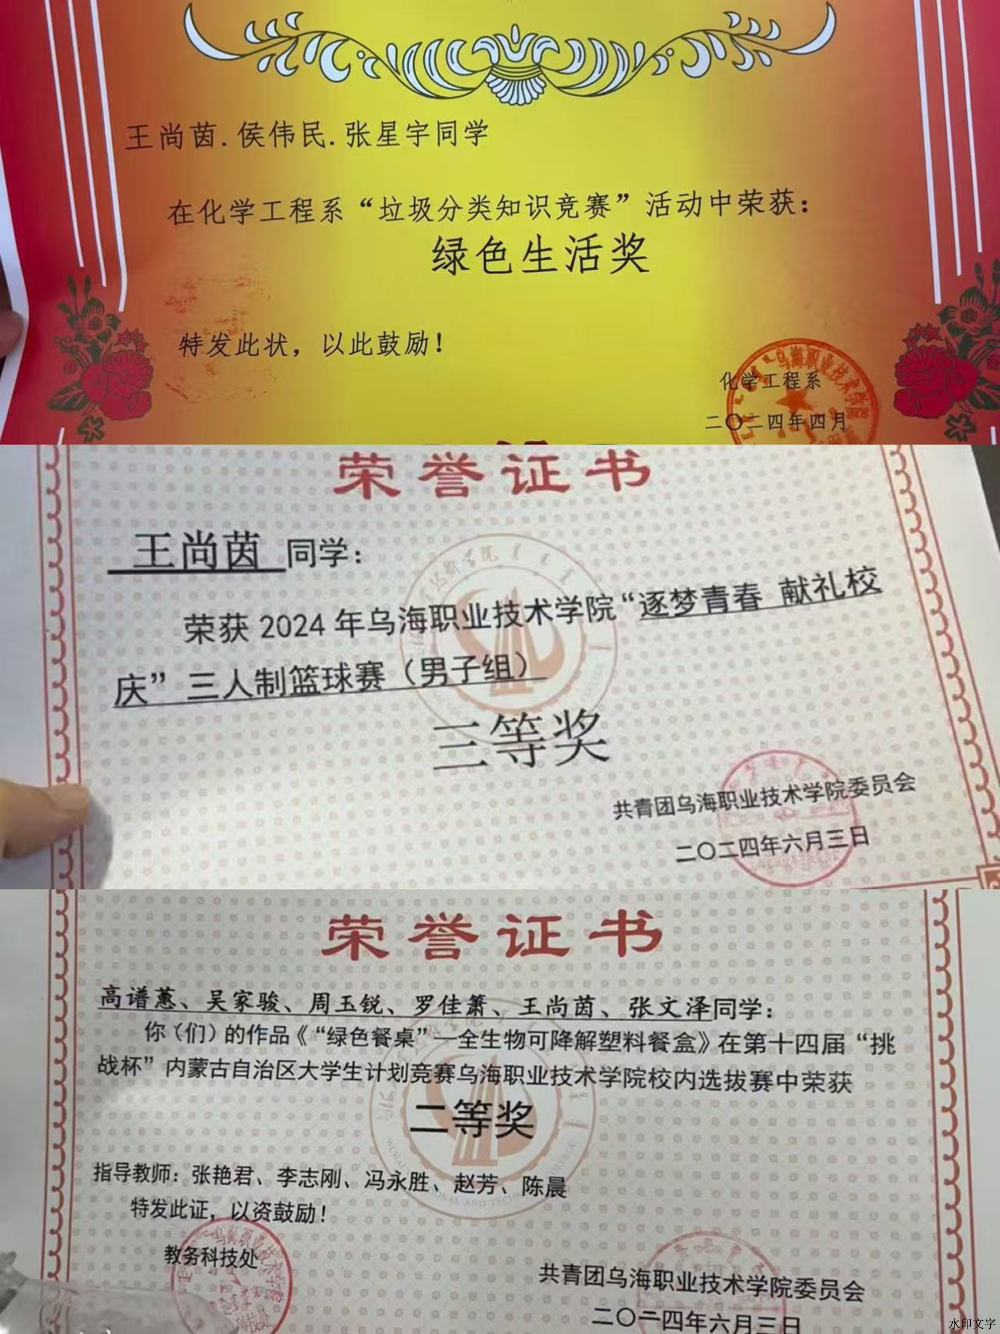 王尚茵.侯伟民.张星宇同学
在化学工程系“垃圾分类知识竞赛”活动中荣获：
绿色生活奖
特发此状，以此鼓励！
化学工程系
二〇二四年四月
荣誉证书
王尚茵 同学：
荣获2024年乌海职业技术学院“逐梦青春 献礼校
庆” 三人制篮球赛（男子组）
三等奖
共青团乌海职业技术学院委员会
二〇二四年六月三日
荣誉证书
高谱蕙、吴家骏、周玉锐、罗佳萧、王尚茵、张文泽同学：
你（们）的作品《“绿色餐桌”—全生物可降解塑料餐盒》在第十四届“挑
战杯”内蒙古自治区大学生计划竞赛乌海职业技术学院校内选拔赛中荣获
二等奖
指导教师：张艳君、李志刚、冯永胜、赵芳、陈晨
特发此证，以资鼓励！
教务科技处
共青团乌海职业技术学院委员会
二〇二四年六月三日
水印文字